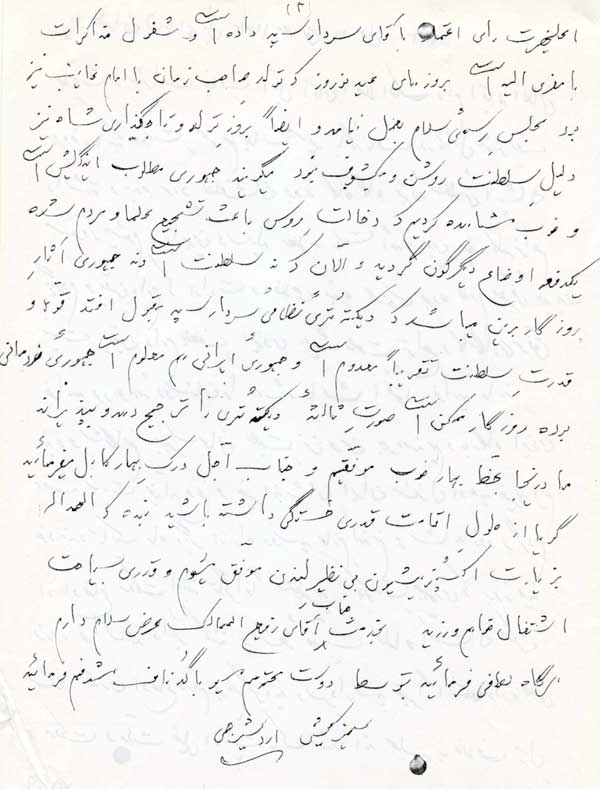 (۲)
اعلیحضرت رأی اعتماد باقای سردار سپه داده است و مشغول مذاکرات
با معزی الیه است بروزهای عید نوروز که تولد صاحب زمان یا امام غایب نیز
بود مجلس رسمی سلام بعمل نیامد و ایضاً بروز تولد و تاجگذاری شاه نیز
دلیل سلطنت روشن و مکشوف نبود میگویند جمهوری مطلوب انگلیس است
و خوب مشاهده کردیم که دخالت روس باعث تشجیع علما و مردم شده
یکدفعه اوضاع دیگرگون گردید و الآن که نه سلطنت است و نه جمهوری آثار
روزگار برین میباشد که دیکته تری نظامی سردار سپه بقبول افتد قوه و
قدرت سلطنت تقریباً معدوم است و جمهوری ایرانی هم معلوم است جمهوری خودمانی
بوده روزگار ممکن است صورت ثالثه دیکته تری را ترجیح دهد و بپذیراند
ما درینجا بحظ بهار خوب موفقیم و جناب اجل درک بهار کابل میفرمائید
گویا از طول اقامت قدری خستگی داشته باشید بنده که الحمدالله
بزیارت اکسپزیشیون بی نظیر لندن موفق میشوم و قدری سیاحت
اشتغال خواهم ورزید بخدمت جناب آقای الممالک عرض سلام دارم
هرگاه لطفی فرمائید بتوسط دوست محترم مسیو مشرفم فرمائید
اردشیرجی